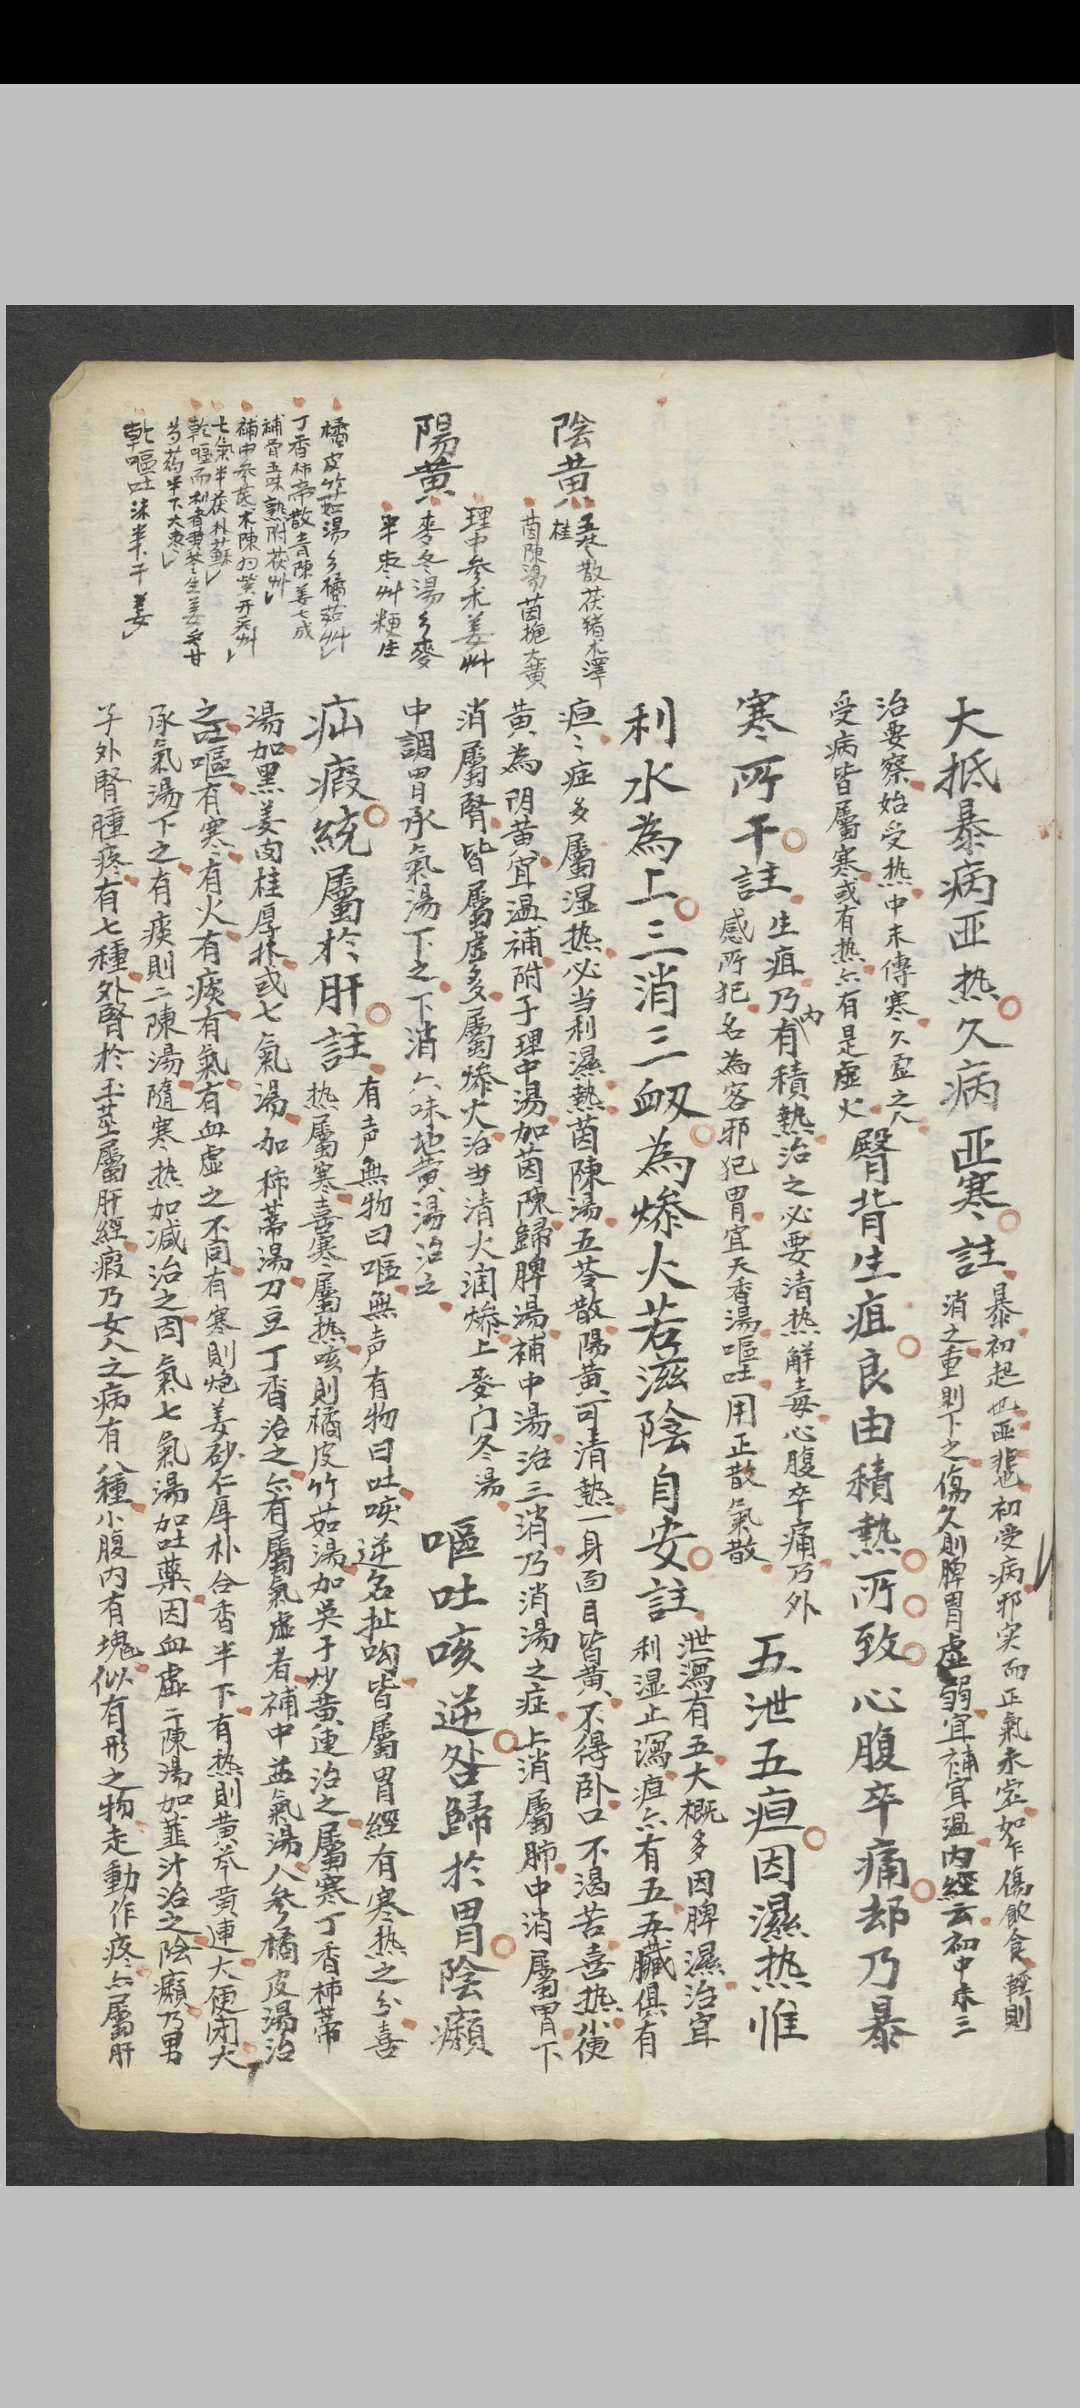 大抵暴病亚热久病亚寒註
暴初起也亚非也初受病邪实而正氣未定如乍傷飲食輕則
消之重則下之傷久則脾胃虛弱宜補宜温内經云初中末三
治要察始受热中末傳寒久虛之人
受病皆屬寒或有热亦有是虛火
臀背生疽良由積熱所致心腹卒痛却乃暴
寒所干註
生疽乃内有積熱治之必要清热解毒心腹卒痛乃外
感所犯名為客邪犯胃宜天香湯嘔吐用正散氣散
五泄五疸因濕热惟
利水為上三消三衂為燥火若滋陰自安註
泄瀉有五大概多因脾濕治宜
利湿止瀉疸亦有五五臟俱有
疸〻症多屬湿热必当利濕熱茵陳湯五苓散陽黄可清熱一身面目皆黄不得卧口不渴苦喜热小便
黄為阴黄宜温補附子理中湯加茵陳歸脾湯補中湯治三消乃消湯之症上消屬肺中消屬胃下
消屬腎皆屬虛多屬燥火治当清火润燥上麥门冬湯
中調胃承氣湯下之下消六味地黄湯治之
嘔吐咳逆咎歸於胃陰㿗
疝瘕統屬於肝註
有声無物曰嘔無声有物曰吐咳逆名扯呴皆屬胃經有寒热之分喜
热屬寒喜寒屬热咳則橘皮竹茹湯加吳于炒黄連治之屬寒丁香柿蒂
湯加黑姜肉桂厚朴或七氣湯加柿蒂湯刀豆丁香治之亦有屬氣虛者補中益氣湯人参橘皮湯治
之註嘔有寒有火有痰有氣有血虛之不同有寒則炮姜砂仁厚朴合香半下有热則黄芩黄連大便闭大
承氣湯下之有痰則二陳湯隨寒热加减治之因氣七氣湯加吐藥因血虛二陳湯加韮汁治之陰㿗乃男
子外腎腫疼有七種外腎於玉莖屬肝經瘕乃女人之病有八種小腹内有塊似有形之物走動作疼亦屬肝
陰黄
五苓散茯猪术澤
桂
茵陳湯茵梔大黄
陽黄
理中参术姜艸
麥冬湯〻麥
半枣艸粳生
橘皮竹茹湯〻橘茹艸
丁香柿蒂散青陳姜七成
補骨五味熟附茯艸
補中参芪术陳
七氣半茯朴蘇
乾嘔而利者黄芩生姜〻甘
芍药半下大枣
乾嘔吐沫半干姜